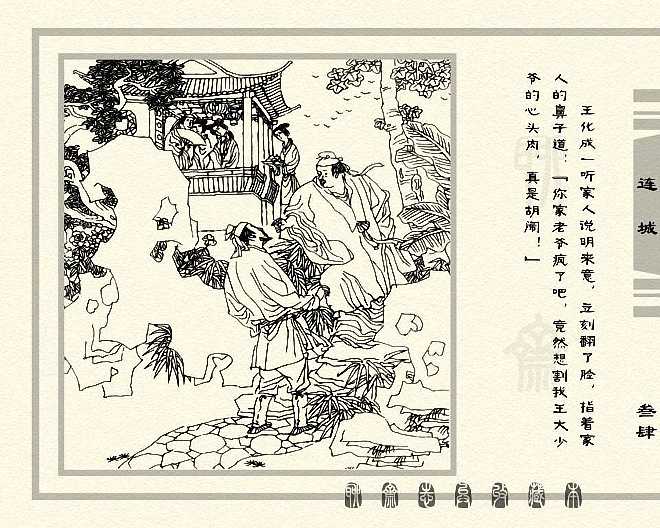 王化成一听家人说明来意，立刻翻了脸，指着家
人的鼻子道：「你家老爷疯了吧，竟然想割我王大少
爷的心头肉，真是胡闹！」
连城
叁肆
聊斋志异收藏本